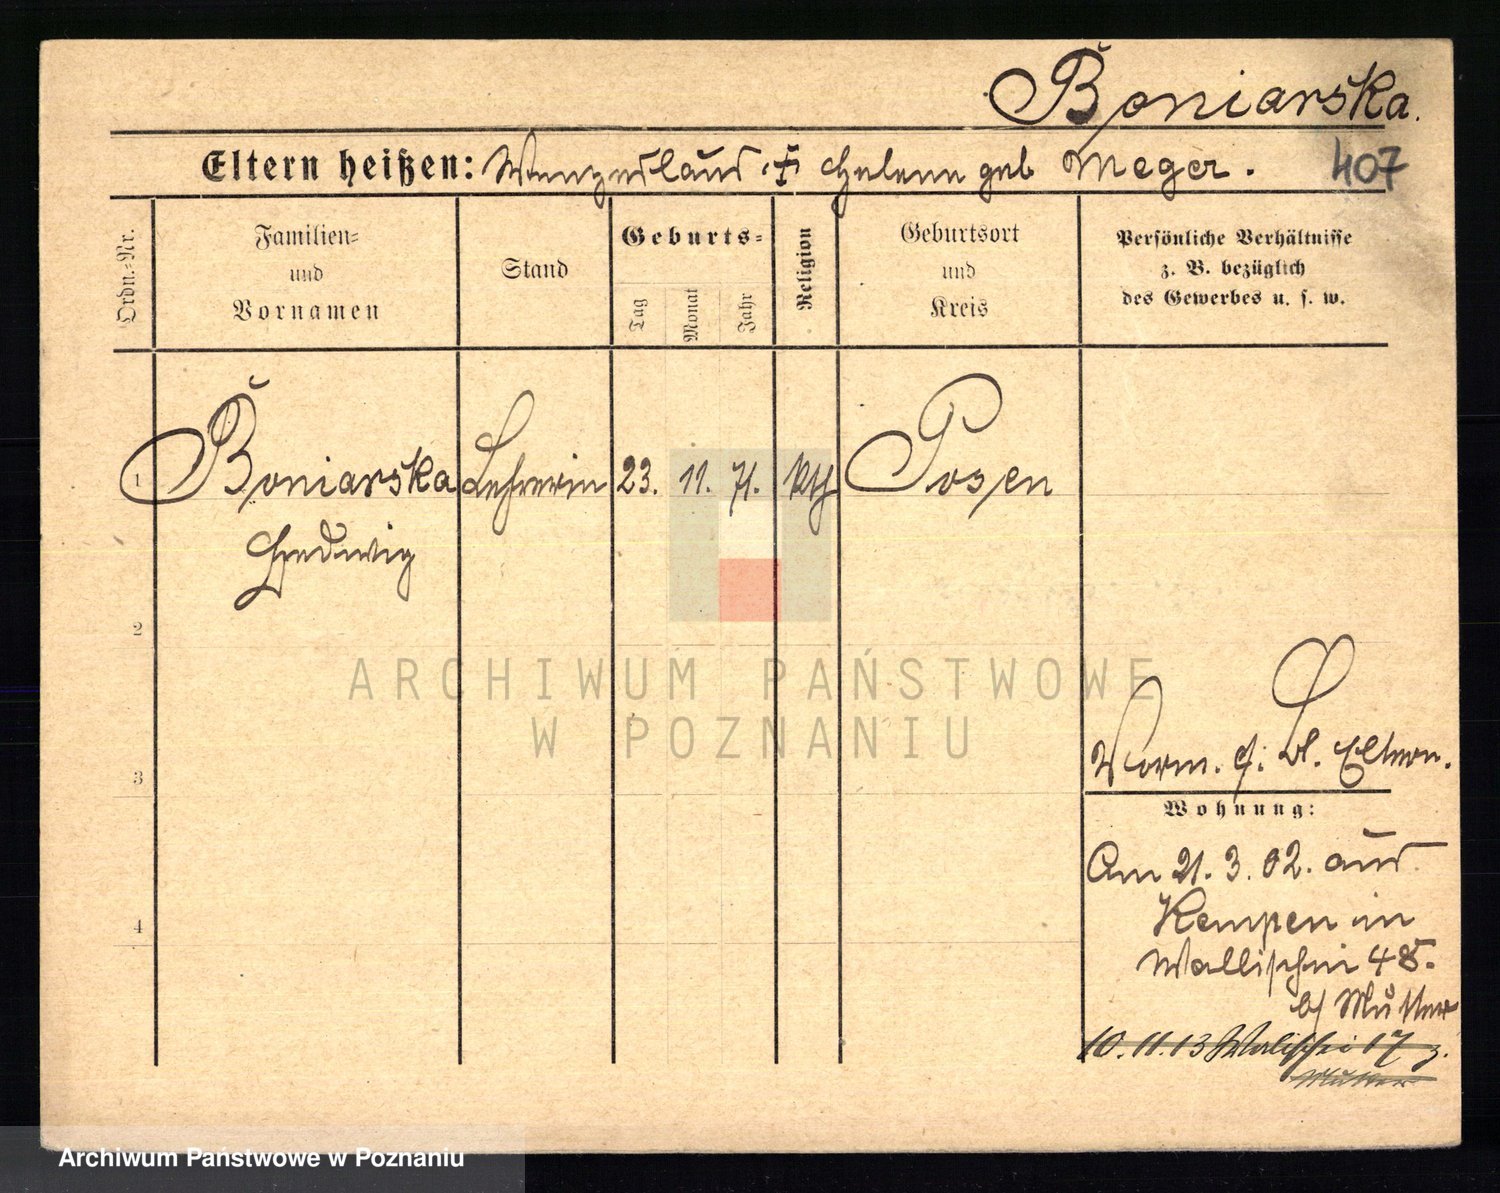 Boniarska.
Eltern heißen: Wenzeslaus + Helene geb Meger.
407
Ordn.-Nr.
Familien-
und
Vornamen
Stand
Geburts-
Tag
Monat
Jahr
Religion
Geburtsort
und
Kreis
Persönliche Verhältnisse
z. B. bezüglich
des Gewerbes u. s. w.
1 Boniarska Lehrerin 23. 11. 71. kth Posen
Hedwig
2
3
4
Vorm. f. bl. Eltern.
Wohnung:
Am 21. 3. 02. aus
Kempen in
Wallischei 48.
b/ Mutter
10. 11. 13 Wallischei 17 z.
Mutter
ARCHIWUM PAŃSTWOWE
W POZNANIU
Archiwum Państwowe w Poznaniu